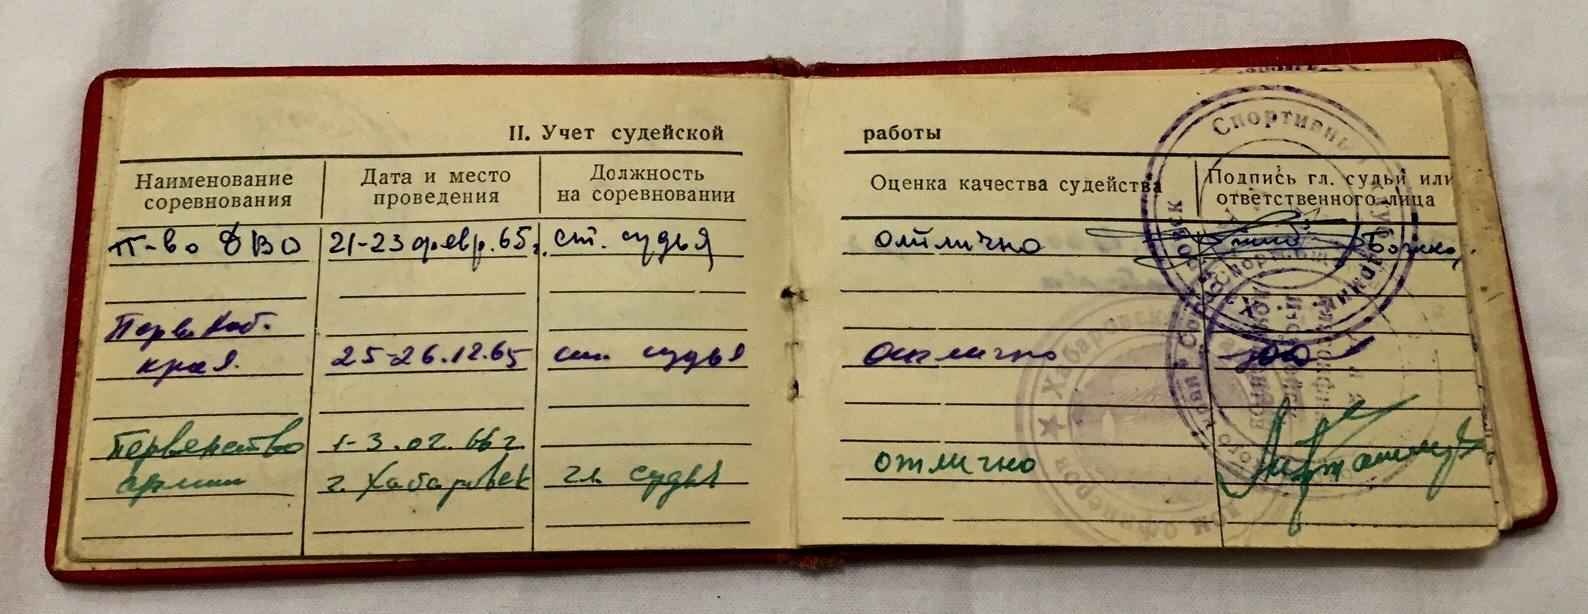 II. Учет судейской работы
Наименование соревнования
Дата и место проведения
Должность на соревновании
Оценка качества судейства
Подпись гл. судьи или ответственного лица
П-во ДВО 21-23 февр. 65г. ст. судья отлично
Перв. Хаб.
края. 25-26.12.65 ст. судья отлично
Первенство 1-3.02.66г.
армии г. Хабаровск гл. судья отлично
Спортивный клуб армии
Хабаровск
офицеров